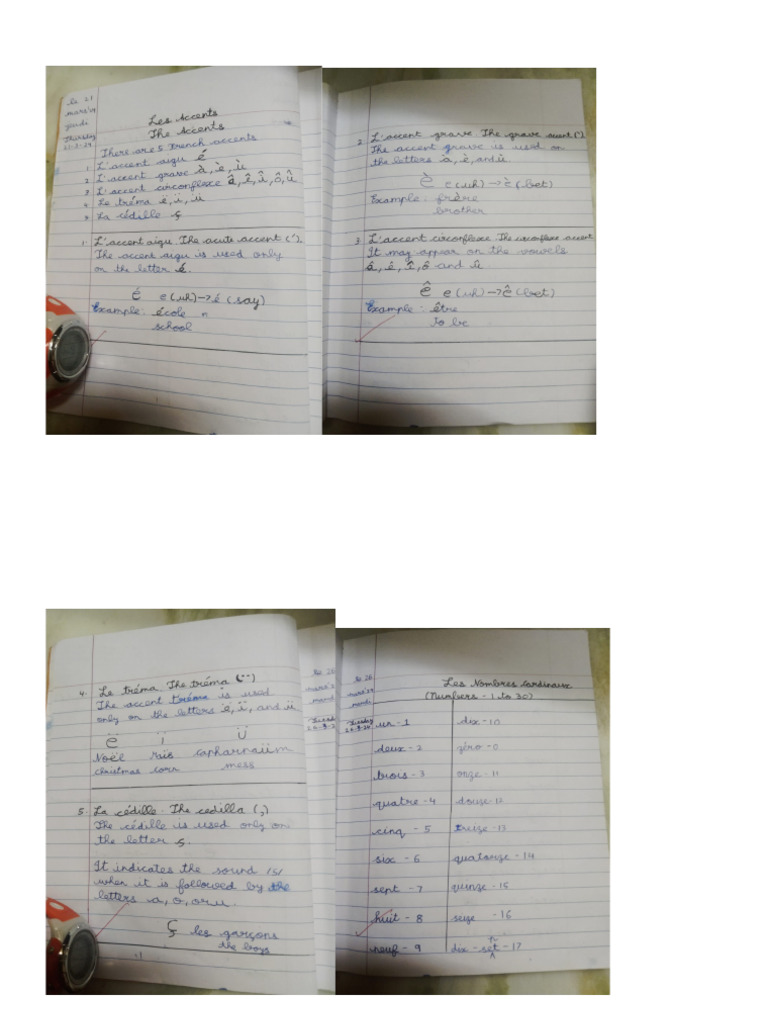 le 21
mars'24
jeudi
Thursday
21-3-24
Les Accents
The Accents
There are 5 french accents
1. L'accent aigu é
2. L'accent grave à, è, ù
3. L'accent circonflexe â, ê, î, ô, û
4. Le tréma ë, ï, ü
5. La cédille ç
1. L'accent aigu. The acute accent (´).
The accent aigu is used only
on the letter é.
é e (uh) → é (say)
Example: école n
school
2. L'accent grave. The grave accent (`).
The accent grave is used on
the letters à, è, and ù.
è e (uh) → è (bet)
Example: frère
brother
3. L'accent circonflexe. The circonflexe accent
It may appear on the vowels
â, ê, î, ô and û
ê e (uh) → ê (bet)
Example: être
To be
4. Le tréma. The tréma (¨)
The accent tréma is used
only on the letters ë, ï, and ü
ë ï ü
Noël maïs capharnaüm
christmas corn mess
5. La cédille. The cedilla (¸)
The cédille is used only on
the letter ç.
It indicates the sound /s/
when it is followed by the
letters a, o, or u.
ç les garçons
the boys
le 26
mars'24
mardi
Tuesday
26-3-24
Les Nombres Cardinaux
(Numbers - 1 to 30)
un - 1
deux - 2
trois - 3
quatre - 4
cinq - 5
six - 6
sept - 7
huit - 8
neuf - 9
dix - 10
zéro - 0
onze - 11
douze - 12
treize - 13
quatorze - 14
quinze - 15
seize - 16
dix - sept - 17